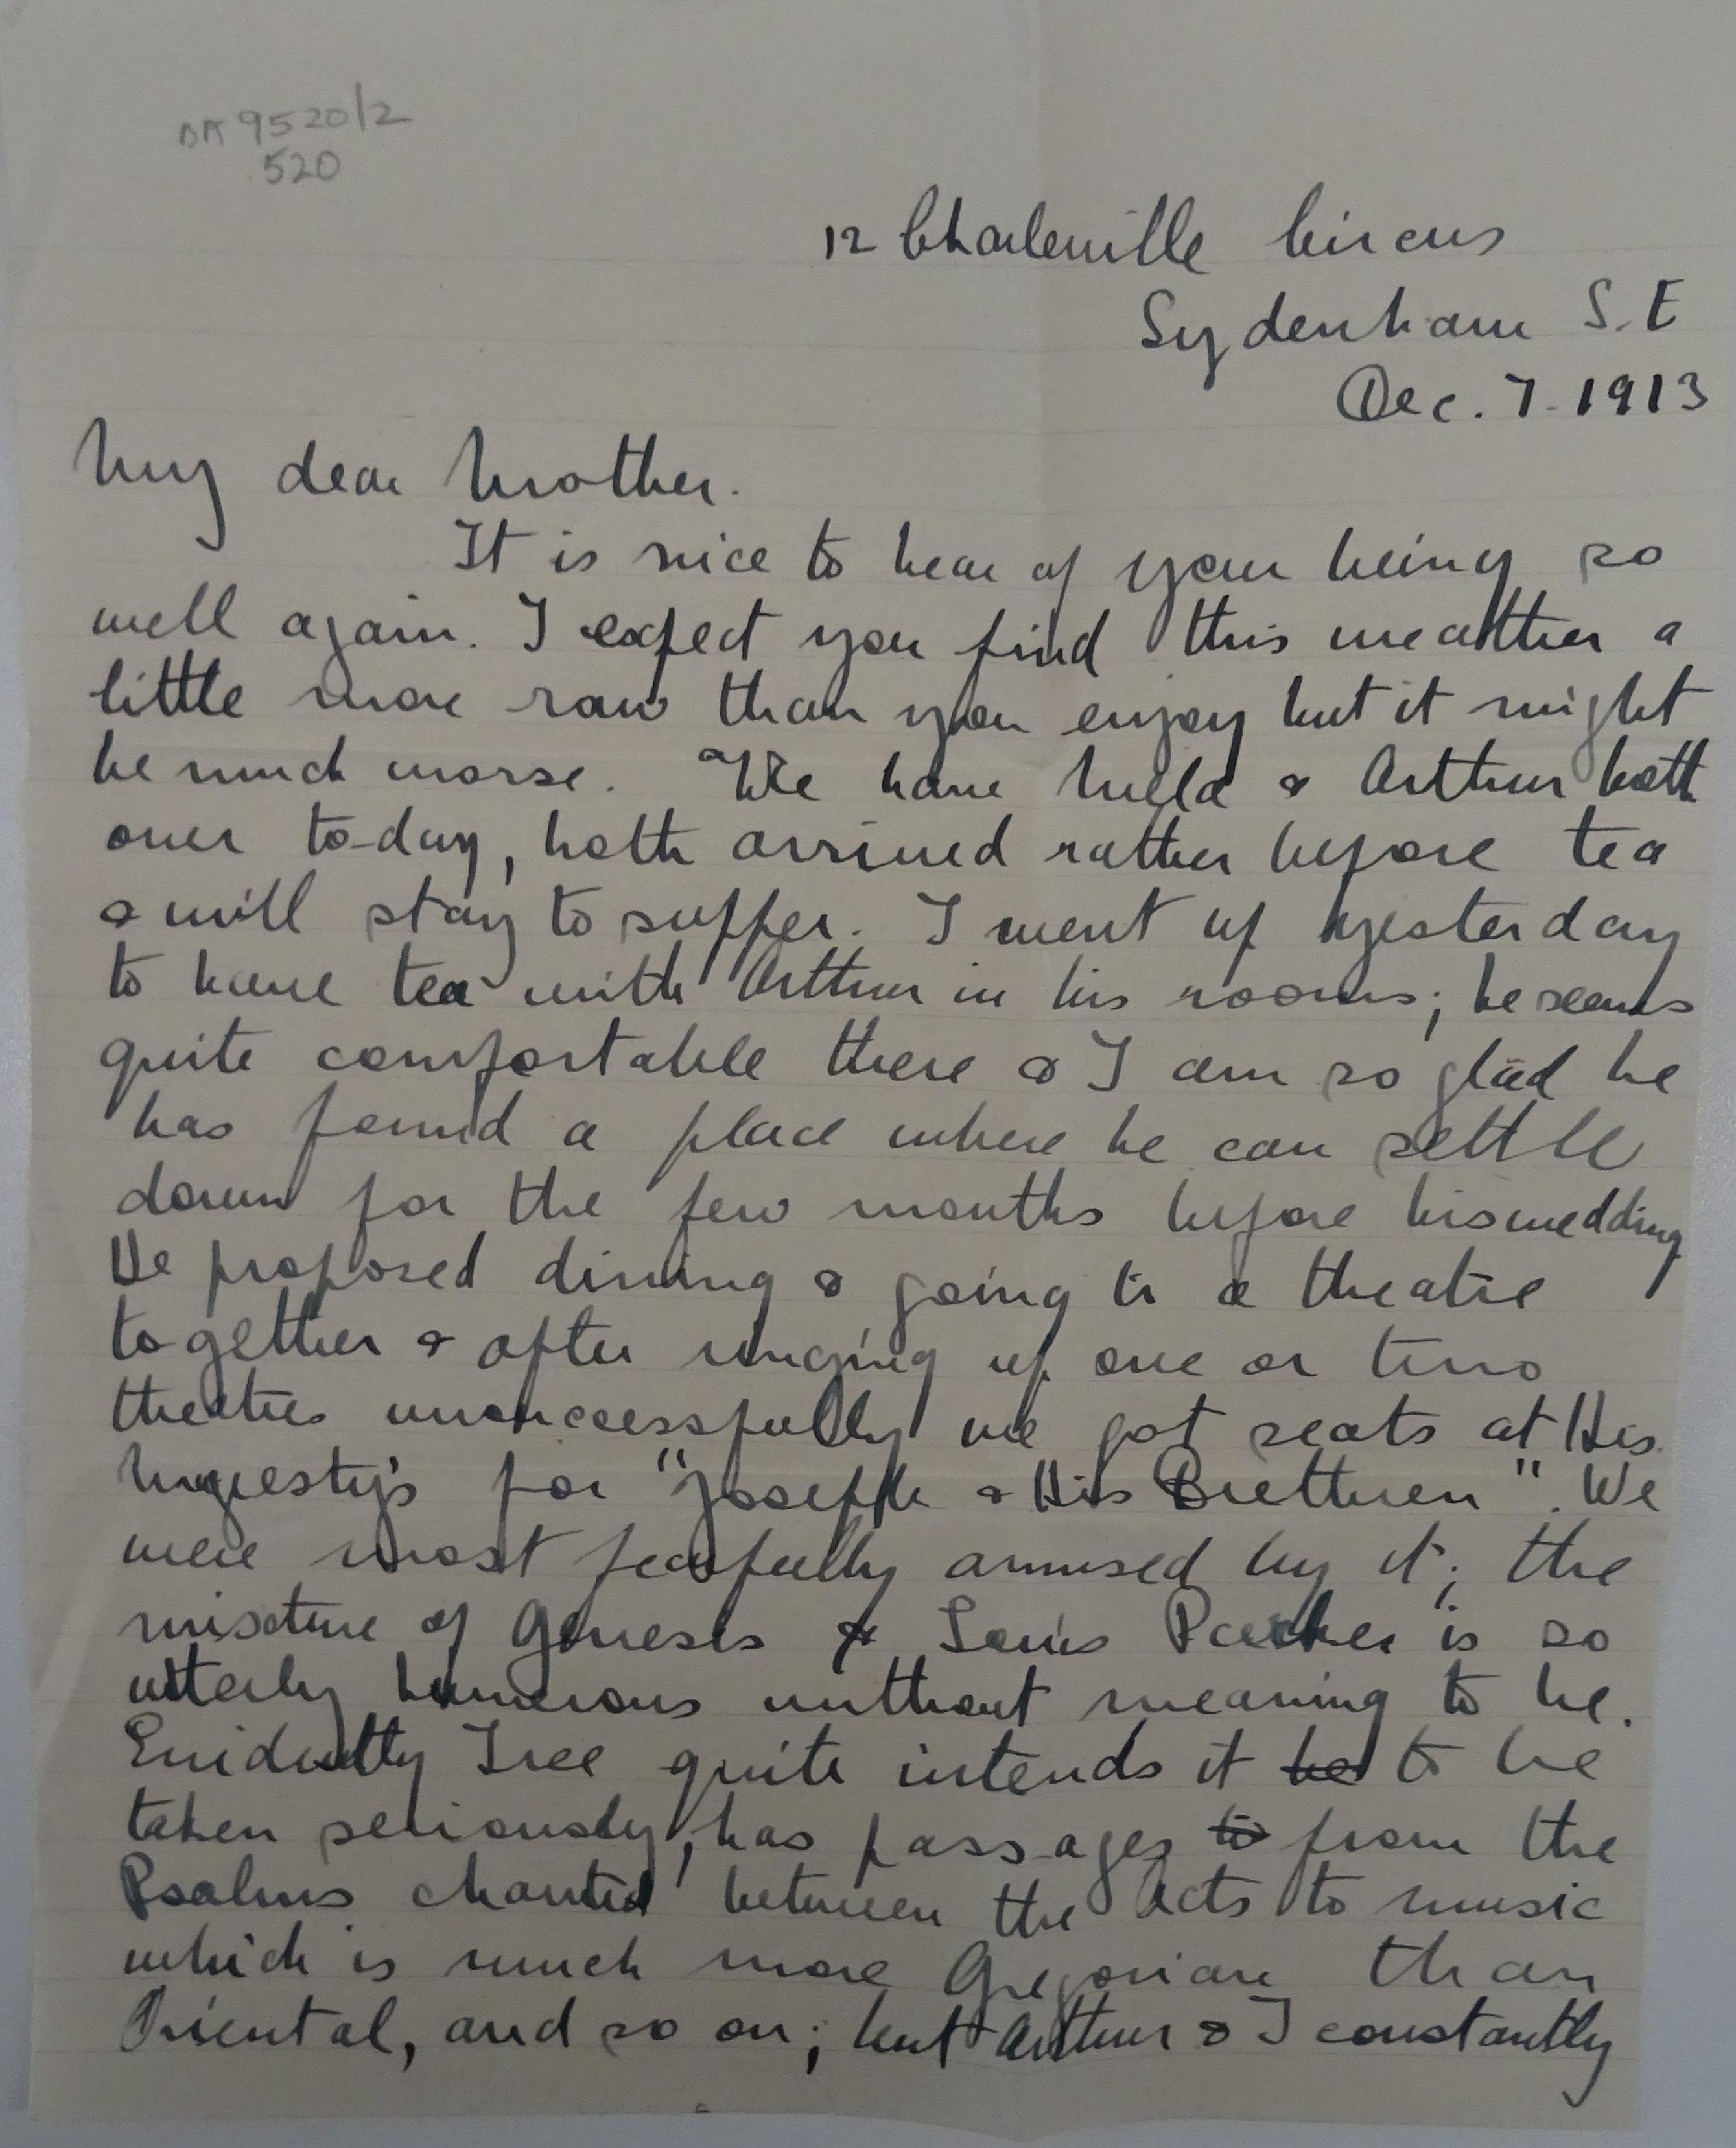 DA 9520/2
520
12 Charleville Circus
Sydenham S.E
Dec. 7. 1913
My dear Mother.
It is nice to hear of your being so
well again. I expect you find this weather a
little more raw than you enjoy but it might
be much worse. We have Hilda & Arthur both
over to-day, both arrived rather before tea
& will stay to supper. I went up yesterday
to have tea with Arthur in his rooms; he seems
quite comfortable there & I am so glad he
has found a place where he can settle
down for the few months before his wedding
He proposed dining & going to a theatre
together & after ringing up one or two
theatres unsuccessfully we got seats at His
Majesty's for "Joseph & His Brethren". We
were most fearfully amused by it; the
mixture of Genesis & Louis Parker is so
utterly humorous without meaning to be.
Evidently Tree quite intends it be to be
taken seriously, has passages to from the
Psalms chanted between the Acts to music
which is much more Gregorian than
Oriental, and so on; but Arthur & I constantly